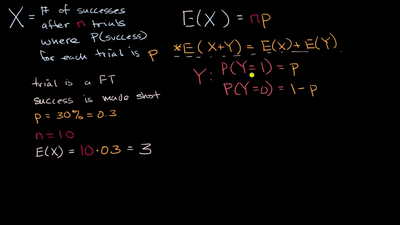 X = # of successes
after n trials
where P(success)
for each trial is p
trial is a FT
success is made shot
p = 30% = 0.3
n = 10
E(X) = 10 · 0.3 = 3
E(X) = np
*E(X+Y) = E(X)+E(Y)
Y: P(Y=1) = p
P(Y=0) = 1-p